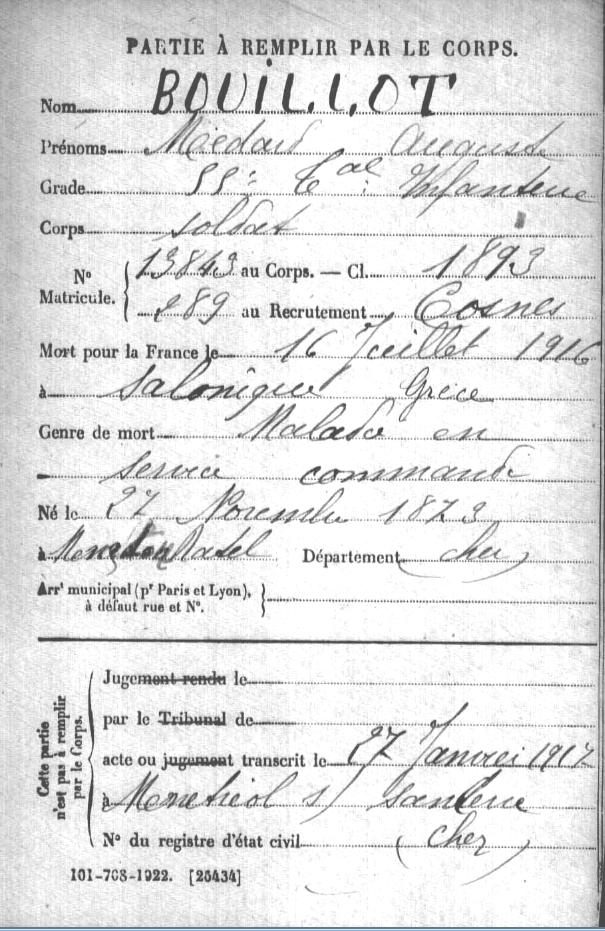 PARTIE À REMPLIR PAR LE CORPS.
Nom BOUILLOT
Prénoms Médard Auguste
Grade 55e Tal Infanterie
Corps soldat
N° Matricule. 13843 au Corps. — Cl. 1893
289 au Recrutement Cosnes
Mort pour la France le 16 Juillet 1916
à Salonique Grèce
Genre de mort Maladie en
service commandé
Né le 27 Novembre 1873
à Menetou Ratel Département Cher
Arrt municipal (pr Paris et Lyon),
à défaut rue et N°.
Cette partie n'est pas à remplir par le Corps.
Jugement rendu le
par le Tribunal de
acte ou jugement transcrit le 27 Janvier 1917
à Menetréol s/ Sancerre
N° du registre d'état civil (Cher)
101-708-1922. [26434]